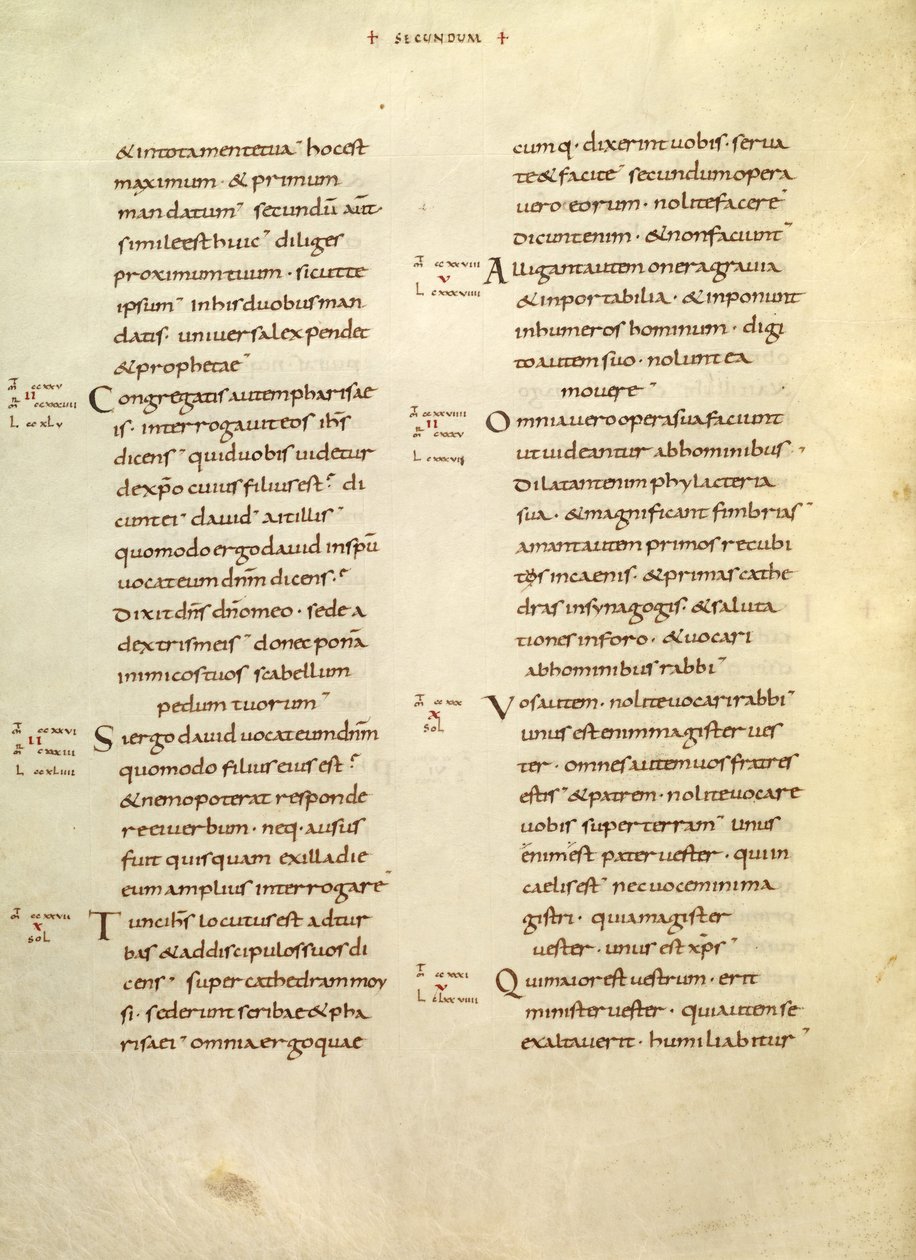 + SECUNDUM +
&intotamentetua hocest
maximum · & primum
mandatum secundū aut̄·
simileesthuic diliges
proximumtuum · sicutte
ipsum inhisduobusman
datis· universalexpendet
&prophetae
m̄ ccxxv
II
m̄r ccxxxvii
L ccxLv
Congregatisautempharisae
is· interrogaviteos ih̄s
dicens quiduobisuidetur
dexp̄o cuiusfiliusest? di
cuntei david aitillis
quomodoergodavid insp̄u
uocateumdn̄m dicens·
Dixitdn̄s dn̄omeo · sedea
dextrismeis donecponā
inimicostuos scabellum
pedum tuorum
m̄ ccxxvi
II
m̄r cxxxiii
L ccxLiiii
Siergodavid uocateumdn̄m
quomodo filiuseiusest?
&nemopoterat responde
reeiverbum· neq·ausus
fuit quisquam exilladie
eumamplius interrogare
m̄ ccxxvii
X
soL
Tuncih̄s locutusest adtur
bas &addiscipulossuosdi
cens supercathedrammoy
si· sederuntscribae&pha
risaei omniaergoquae
cumq· dixerintuobis· serua
te&facite secundumopera
uero eorum· nolitefacere
dicuntenim· &nonfaciunt
m̄ ccxxviii
V
L cxxxviii
Alligantautemoneragravia
&inportabilia· &inponunt
inhumeros hominum· digi
toautemsuo· nolunt ea
movere
m̄ ccxxviiii
II
m̄r cxxxv
L cxxxvii
Omniaverooperasuafaciunt
utuideantur abhominibus
Dilatantenimphylacteria
sua· &magnificantfimbrias
amantautem primosrecubi
tosincaenis· &primascathe
drasinsynagogis· &saluta
tionesinforo· &vocari
abhominibusrabbi
m̄ ccxxx
X
soL
Vosautem· nolitevocarirabbi
unus estenimmagisterues
ter· omnesautemuosfratres
estis &patrem· nolitevocare
uobis superterram unus
enimest pateruester· quiin
caelisest necuoceminima
gistri· quiamagister
uester· unus estxp̄s
m̄ ccxxxi
V
L clxxviiii
Quimaiorestuestrum· erit
ministeruester· quiautemse
exaltaverit· humiliabitur